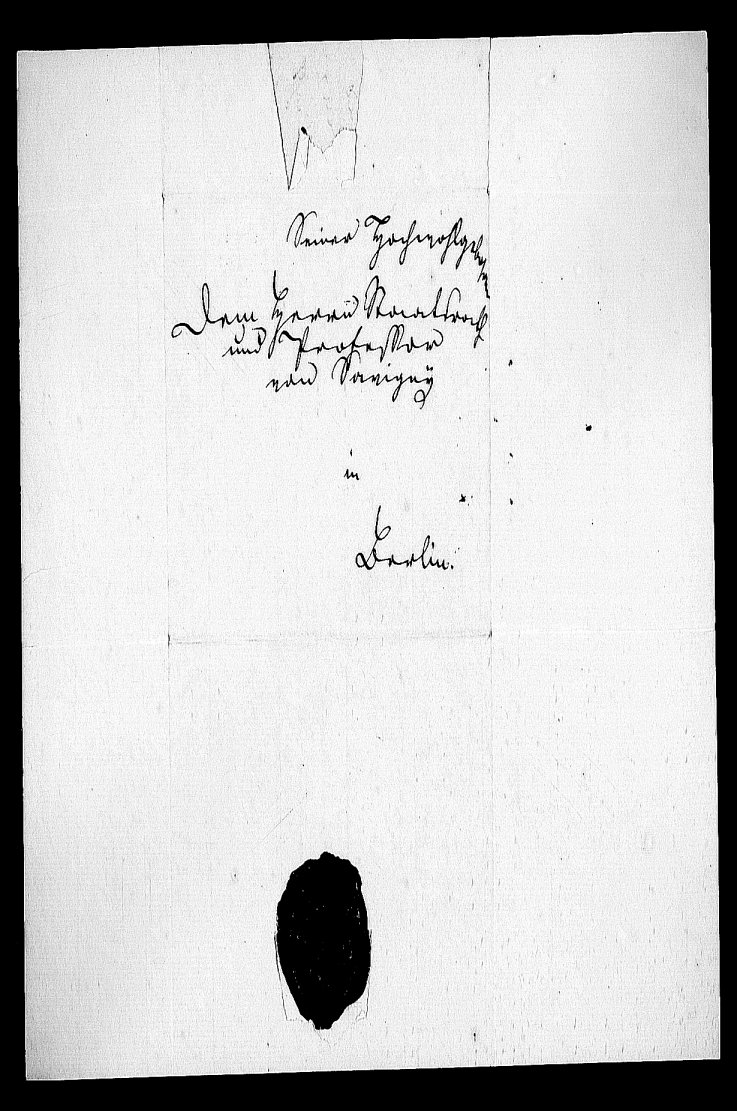 Seiner Hochwohlgeboren
Dem Herrn Staatsrath
und Professor
von Savigny
in
Berlin.